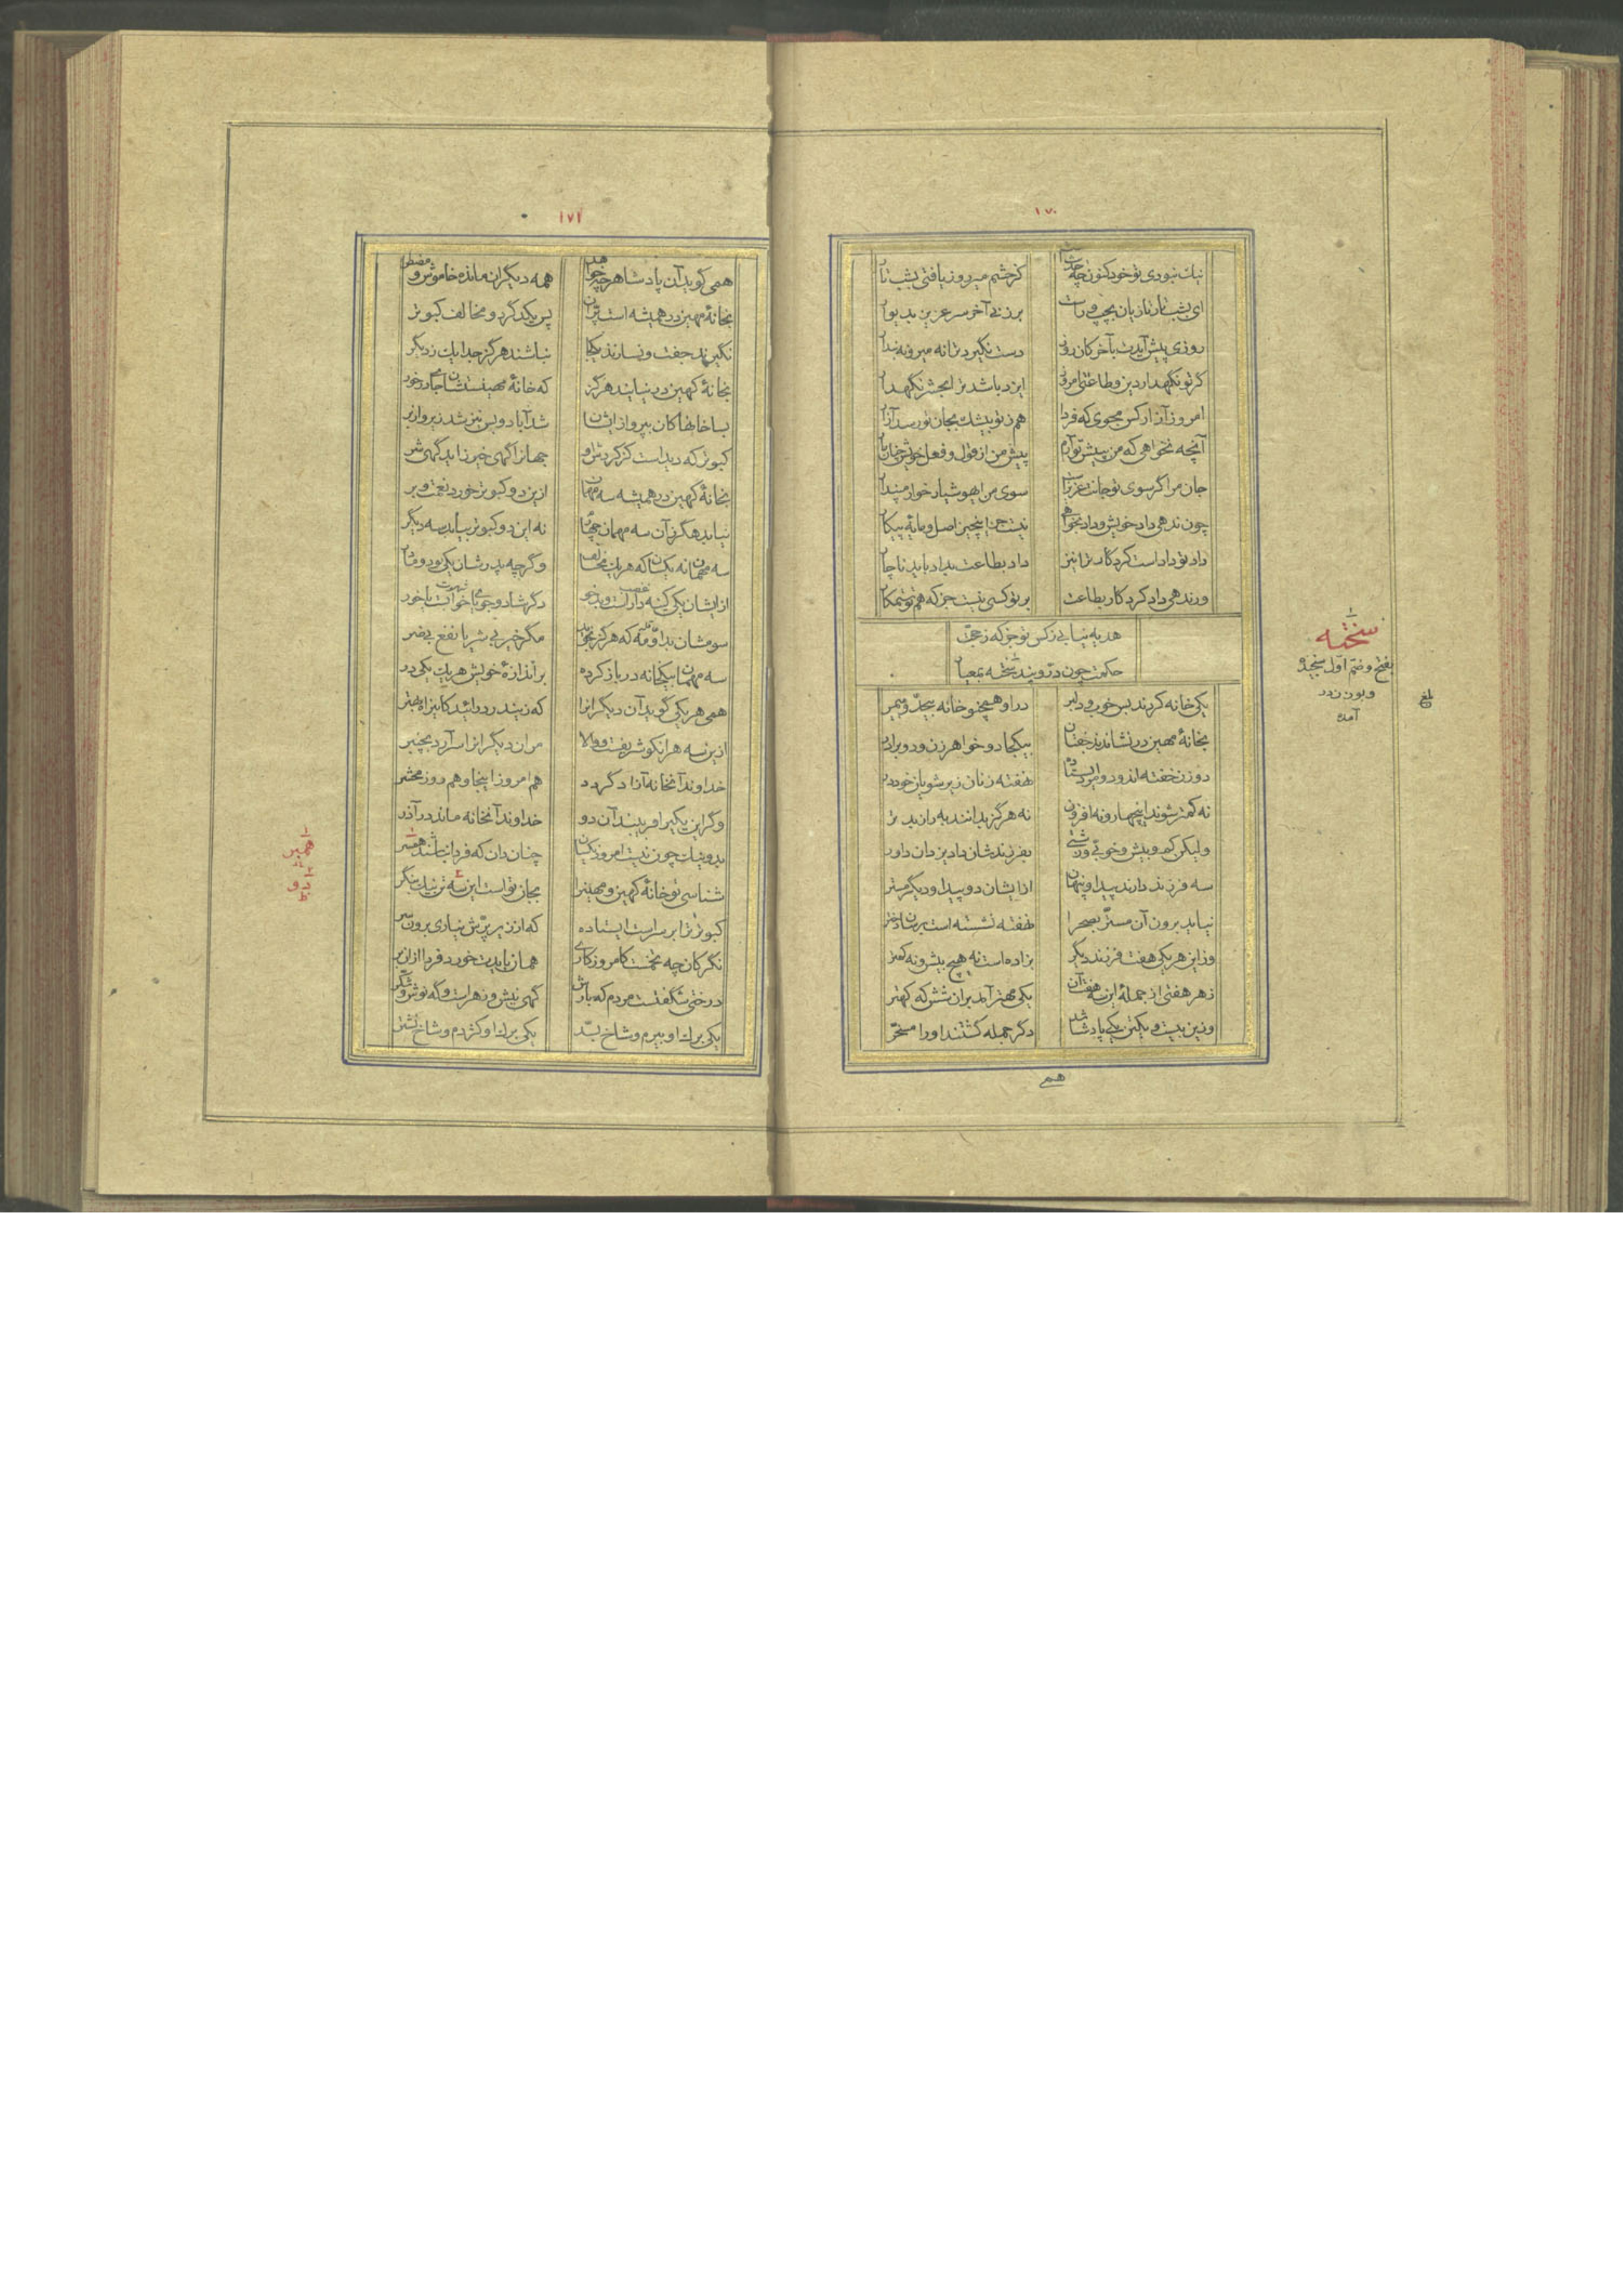 ۱۷۰
نیک نبودی تو خود کنون چه حدیث است کز حشم میر و زیافتی بشب تار
ای بشب تار تازیان بچپ و راست برزنی آخر سر عزیز بدیوار
روزی پیش آیدت بآخر کان روز دست نگیرد ترا نه میر و نه بندار
گر تو نگهدار دین و طاعتی امروز ایزد باشد ترا بحشر نگهدار
امروز آزار کس مجوی که فردا هم ز تو بیشک بجان تو رسد آزار
آنچه نخواهی که من بپیش تو آرم پیش من از قول و فعل خویش چنان مار
جان مرا گر سوی تو جانت عزیز است سوی من ای هوشیار خوار مپندار
چون ندهی داد خویش و داد بخواهی نیست جز اینچیز اصل و مایهٔ پیکار
داد تو داد است کردگار ترا نیز داد بطاعت بداد باید ناچار
ور ندهی داد کردگار بطاعت بر تو کسی نیست جز که هم تو ستمکار
هدیه نیابی ز کس تو جز که ز حجت
حکمت چون در و پند سخته بمعیار
یکی خانه کردند بس خوب و دلبر در او همچنو خانه بیحد و بیمر
بخانهٔ مهین در نشاندند جفتان بیکجا دو خواهر زن و دو برادر
دو زن خفته اند و دو مرد ایستاده نهفته زنان زیر شویان خود در
نه کمتر شوند این چهار و نه افزون نه هرگز بدانند به را ز بدتر
ولیکن کم و بیش و خوبی و زشتی بفرزندشان داد یزدان داور
سه فرزند دارند پیدا و پنهان ازایشان دو پیدا و دیگر مستر
نیاید برون آن مستر بصحرا نهفته نشسته است برسان دختر
وزاین هر یکی هفت فرزند دیگر بزاده است نه هیچ بیش و نه کمتر
ز هر هفتی از جملهٔ این سه هفتان یکی مهتر آمد بران شش که کهتر
وزین بیست و یکتن یکی پادشا شد دگر جمله گشتند او را مسخر
همی
سخته
بفتح و ضم اول سنجیده
و بوزن زدر
آمده
بلغ
۱۷۱
همی گوید آن پادشا هر چه خواهد همه دیگران مانده خاموش و مضطر
بخانهٔ مهین در همیشه است پران پس یکدگر دو مخالف کبوتر
نگیرند جفت و نسازند یکجا نباشند هرگز جدا یک ز دیگر
بخانهٔ کهین در نیایند هرگز که خانهٔ مهینست شان جای درخور
بسا خانها کان بپرواز ایشان شد آباد و بس نیز شد زیر و از بر
کبوتر که دیداست کز گردش او جهان را گهی خیر زاید گهی شر
بخانهٔ کهین در همیشه سه مهمان ازین دو کبوتر خورد نعمت و بر
نیاید هگرز آن سه مهمان چهانی نه این دو کبوتر بیابد سه دیگر
سه مهمان نه یکسان که هر یک مخالف وگرچه پدرشان یکی بود و مادر
ازایشان یکی کینه دار است و بدخو دگر شاد و جویای خوابست یا خور
سومشان به و مه که هرگز نجوید مگر خیر بی شر یا نفع بی ضر
سه مهمان بیکخانه در باز کرده بر اندازهٔ خویش هر یک یکی در
همی هر یکی گوید آن دیگران را که زیندر درآئید کاین راه بهتر
ازین سه هر انکو شریفست و والا مر آن دیگران را سر آرد بچنبر
خداوند آنخانه آزاد گردد هم امروز اینجا و هم روز محشر
وگر این یکی را فریبند آن دو خداوند آنخانه ماند در آذر
بدو نیک چون نیست امروز یکسان چنان دان که فردا نباشند همبر
شناسی تو خانهٔ کهین و مهین را بجان تو است این سه تن نیک بنگر
کبوتر ترا بر سر است ایستاده که از زیر پرش نیاری برون سر
نگر کان چه تخمست کامروز کاری همان بایدت خورد فردا از آن بر
درختی شگفتست مردم که بارش گهی نیش و زهر است و گه نوش و شکر
یکی برگ او بیرم و شاخ بسد یکی برگ او کژدم و شاخ نشتر
همبر